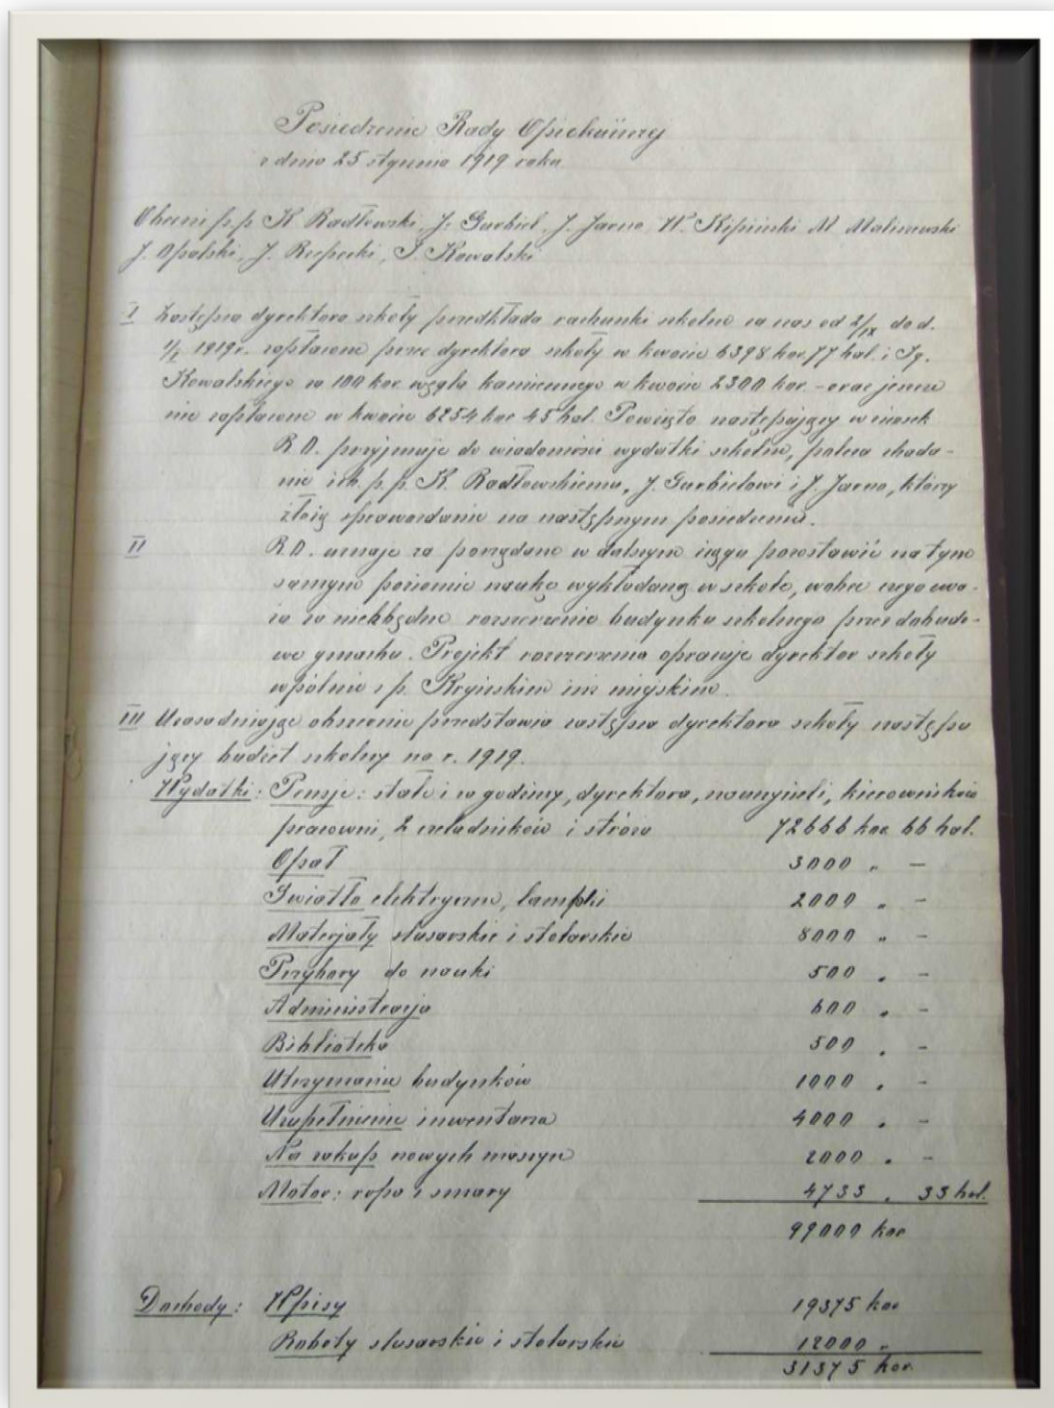 Posiedzenie Rady Opiekuńczej
z dnia 25 stycznia 1919 roku
Obecni p.p. K. Radłowski, J. Gurbiel, J. Jarno, W. Kipiński M. Maliszewski
J. Opalski, J. Rzepecki, I. Kowalski
I Zastępca dyrektora szkoły przedkłada rachunki szkolne za czas od 2/IX do d.
1/I 1919 r. zapłacone przez dyrektora szkoły w kwocie 6398 kor. 77 hal. i Ig.
Kowalskiego za 100 kor. węgla kamiennego w kwocie 2300 kor. - oraz jeszcze
nie zapłacone w kwocie 6254 kor 45 hal. Powzięto następujący wniosek
R.O. przyjmuje do wiadomości wydatki szkolne, poleca zbada-
nie ich p.p. K. Radłowskiemu, J. Gurbielowi i J. Jarno, którzy
złożą sprawozdanie na następnym posiedzeniu.
II R.O. uznaje za pożądane w dalszym ciągu pozostawić na tym
samym poziomie naukę wykładaną w szkole, wobec czego uwa-
ża za niezbędne rozszerzenie budynku szkolnego przez dobudo-
wę gmachu. Projekt rozszerzenia opracuje dyrektor szkoły
wspólnie z p. inż miejskim.
III Uzasadniając obszernie przedstawia zastępca dyrektora szkoły następu
jący budżet szkolny na r. 1919.
Wydatki: Pensje: stałe i za godziny, dyrektora, nauczycieli, kierowników
pracowni, 2 czeladników i stróża 72666 kor. 66 hal.
Opał 3000 " -
Światło elektryczne, lampki 2000 " -
Materjały ślusarskie i stolarskie 8000 " -
Przybory do nauki 500 " -
Administracja 600 " -
Biblioteka 500 " -
Utrzymanie budynków 1000 " -
Uzupełnienie inwentarza 4000 " -
Na zakup nowych maszyn 2000 " -
Motor: ropa i smary 4733 " 33 hal.
99000 kor
Dochody: Wpisy 19375 kor
Roboty ślusarskie i stolarskie 12000 "
31375 kor.